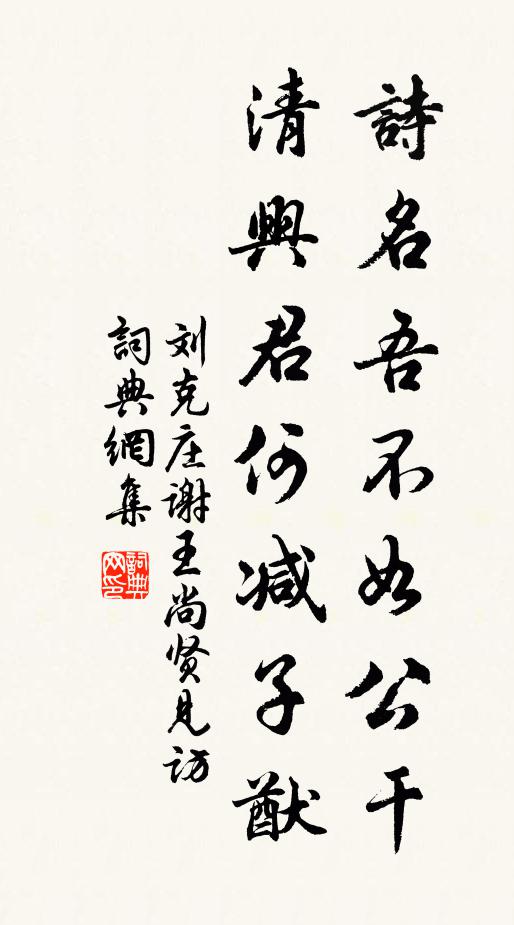 詩名吾不如公干
清興君何减子猷
刘克庄谢王尚贤見访
詞典網集
詞典
网印